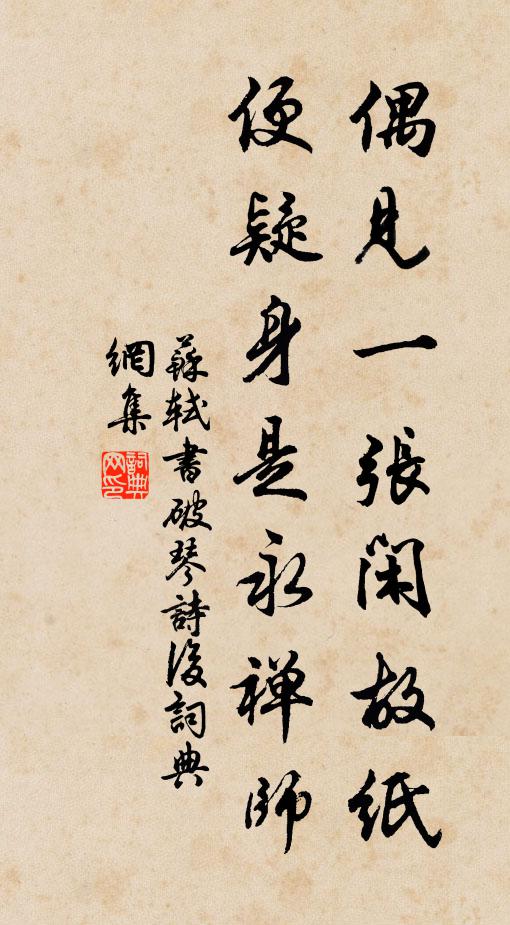 偶見一張閑故紙
便疑身是永禪師
蘇軾書破琴詩後詞典
網集
詞典
网印